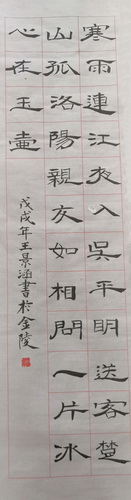 寒雨連江夜入吳平明送客楚
山孤洛陽親友如相問一片冰
心在玉壺
戊戌年王景涵書於金陵